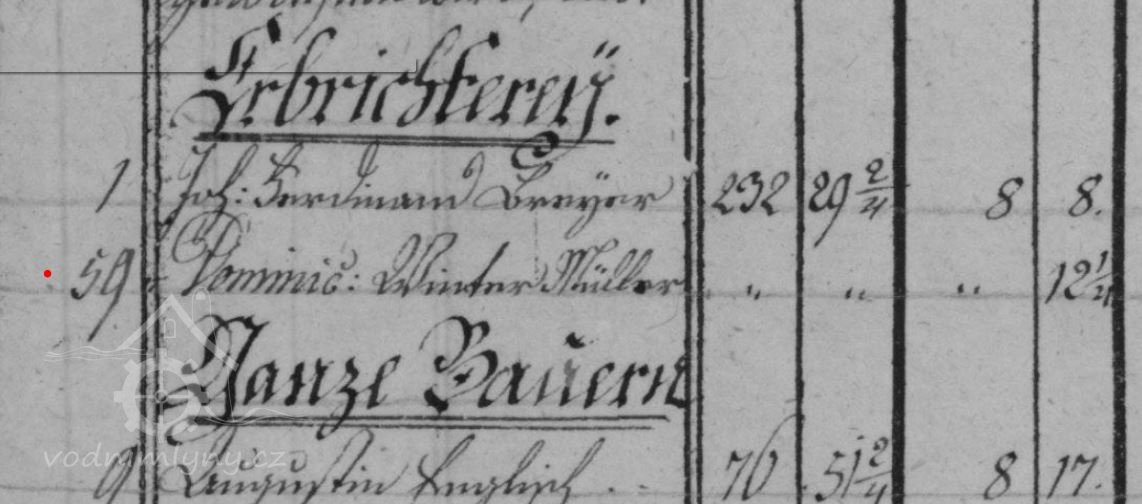 Erbrichterey.
1 Joh: Ferdinand Breyer 232 29 2/4 8 8.
59 Dominic: Winter Müller " " " 12 1/4
Ganze Bauern
9 Augustin Englisch 76 51 2/4 8 17.
vodnimlyny.cz